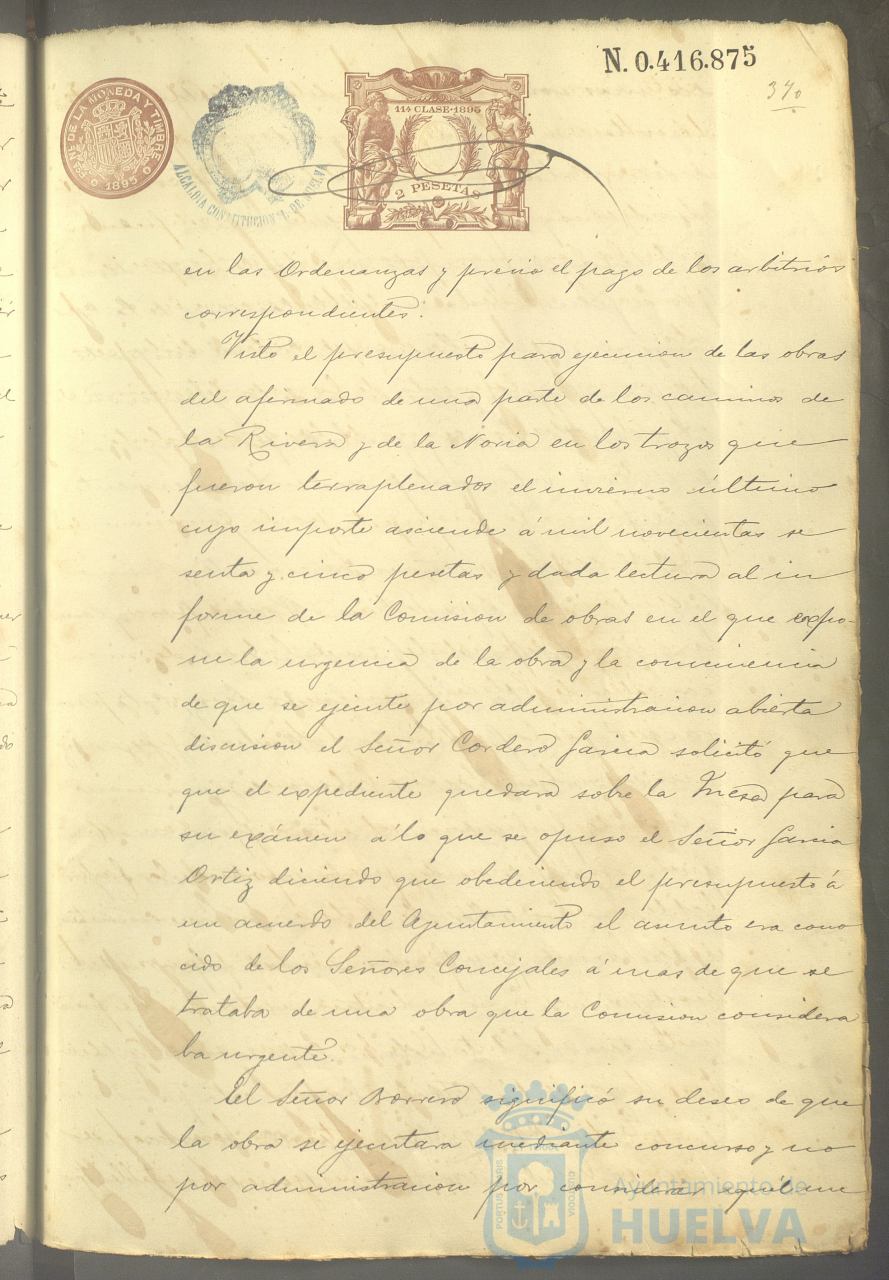 N. 0.416.875
370
FNE DE LA MONEDA Y TIMBRE
1895
ALCALDIA CONSTITUCIONAL DE HUELVA
11ª CLASE-1895
2 PESETAS
en las Ordenanzas y prévio el pago de los arbitrios
correspondientes.
Visto el presupuesto para ejecucion de las obras
del afirmado de una parte de los caminos de
la Rivera y de la Noria en los trozos que
fueron terraplenados el invierno último
cuyo importe asciende á mil novecientas se
senta y cinco pesetas y dada lectura al in
forme de la Comision de obras en el que expo-
ne la urgencia de la obra y la conveniencia
de que se ejecute por administracion abierta
discusion el Señor Cordero Garcia solicitó que
que el expediente quedara sobre la Mesa para
su exámen á lo que se opuso el Señor Garcia
Ortiz diciendo que obedeciendo el presupuesto á
un acuerdo del Ayuntamiento el asunto era cono
cido de los Señores Concejales á mas de que se
trataba de una obra que la Comision considera
ba urgente.
El Señor Borrero significó su deseo de que
la obra se ejecutara mediante concurso y no
por administracion por considerar aquél me
PORTUS MARIS
ET TERRAE
CUSTODIA
Ayuntamiento de
HUELVA